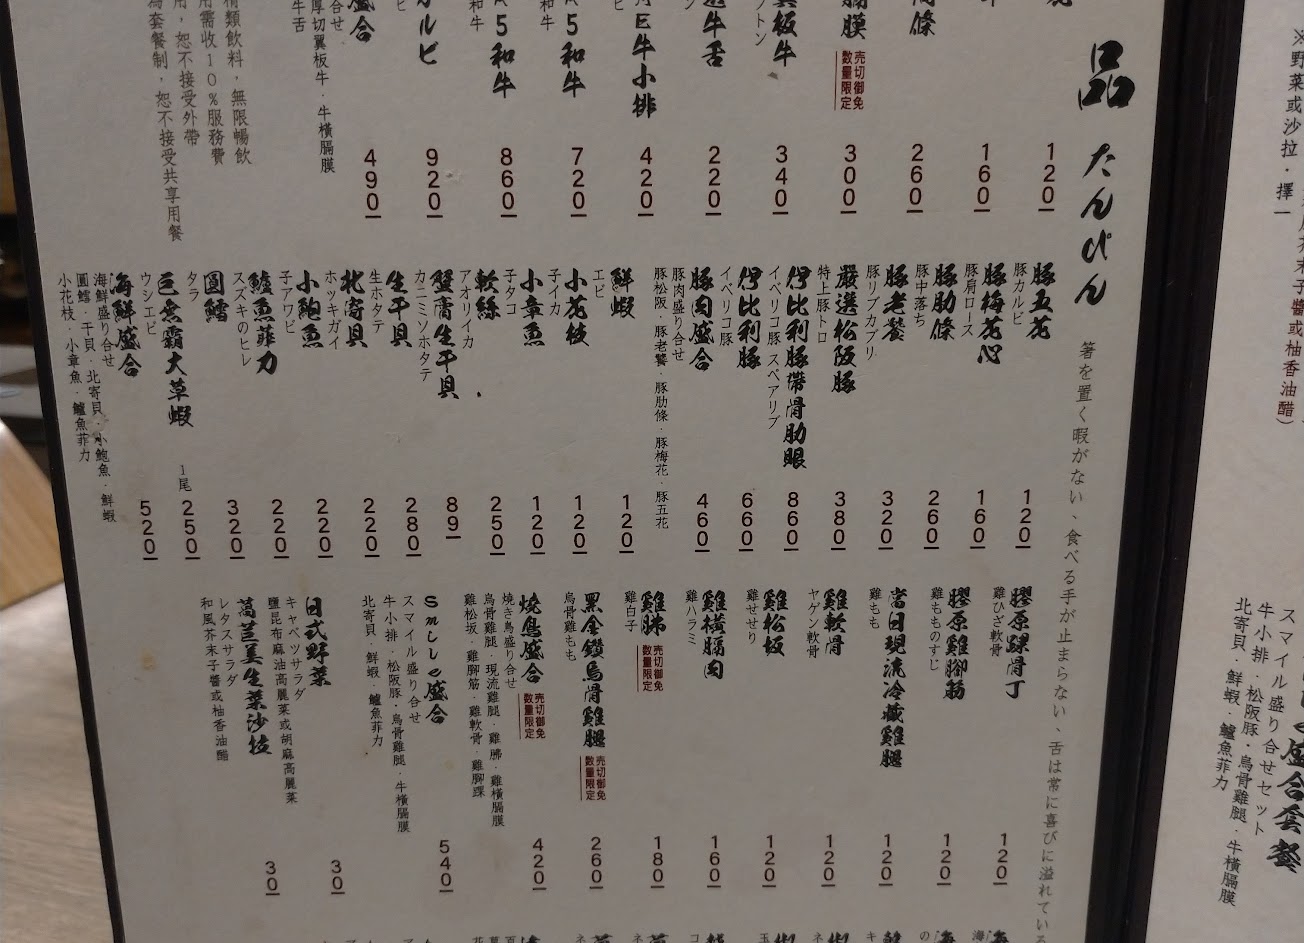 品 たんぴん
箸を置く暇がない、食べる手が止まらない、舌は常に喜びに溢れている
120
160
260
膈膜
売切御免
数量限定
300
翼板牛
340
牛舌
220
牛小排
420
A5和牛
720
A5和牛
860
カルビ
920
盛合
合せ
厚切翼板牛．牛橫膈膜
牛舌
490
精類飲料，無限暢飲
用需收10%服務費
用，恕不接受外帶
為套餐制，恕不接受共享用餐
豚五花
豚カルビ
120
豚梅花心
豚肩ロース
160
豚肋條
豚中落ち
260
豚老饕
豚リブカブリ
320
嚴選松阪豚
特上豚トロ
380
伊比利豚帶骨肋眼
イベリコ豚 スペアリブ
860
伊比利豚
イベリコ豚
660
豚肉盛合
豚肉盛り合せ
豚松阪．豚老饕．豚肋條．豚梅花．豚五花
460
鮮蝦
エビ
120
小花枝
子イカ
120
小章魚
子タコ
120
軟絲
アオリイカ
250
蟹膏生干貝
カニミソホタテ
89
生干貝
生ホタテ
280
北寄貝
ホッキガイ
220
小鮑魚
子アワビ
220
鱸魚菲力
スズキのヒレ
220
圓鱈
タラ
320
巨無霸大草蝦 1尾
ウシエビ
250
海鮮盛合
海鮮盛り合せ
圓鱈．干貝．北寄貝．小鮑魚．鮮蝦
小花枝．小章魚．鱸魚菲力
520
膠原踝骨丁
雞ひざ軟骨
120
膠原雞腳筋
雞もものすじ
120
當日現流冷藏雞腿
雞もも
120
雞軟骨
ヤゲン軟骨
120
雞松坂
雞せせり
120
雞橫膈肉
雞ハラミ
160
雞胇
売切御免
数量限定
雞白子
180
黑金鑽烏骨雞腿
売切御免
数量限定
烏骨雞もも
260
燒鳥盛合
売切御免
数量限定
焼き鳥盛り合せ
烏骨雞腿．現流雞腿．雞胇．雞橫膈膜
雞松坂．雞腳筋．雞軟骨．雞腳踝
420
Smile盛合
スマイル盛り合せ
牛小排．松阪豚．烏骨雞腿．牛橫膈膜
北寄貝．鮮蝦．鱸魚菲力
540
日式野菜
キャベツサラダ
鹽昆布麻油高麗菜或胡麻高麗菜
30
萵苣美生菜沙拉
レタスサラダ
和風芥末子醬或柚香油醋
30
※野菜或沙拉，擇一
芥末子醬或柚香油醋）
盛合套餐
スマイル盛り合せセット
牛小排．松阪豚．烏骨雞腿．牛橫膈膜
北寄貝．鮮蝦．鱸魚菲力